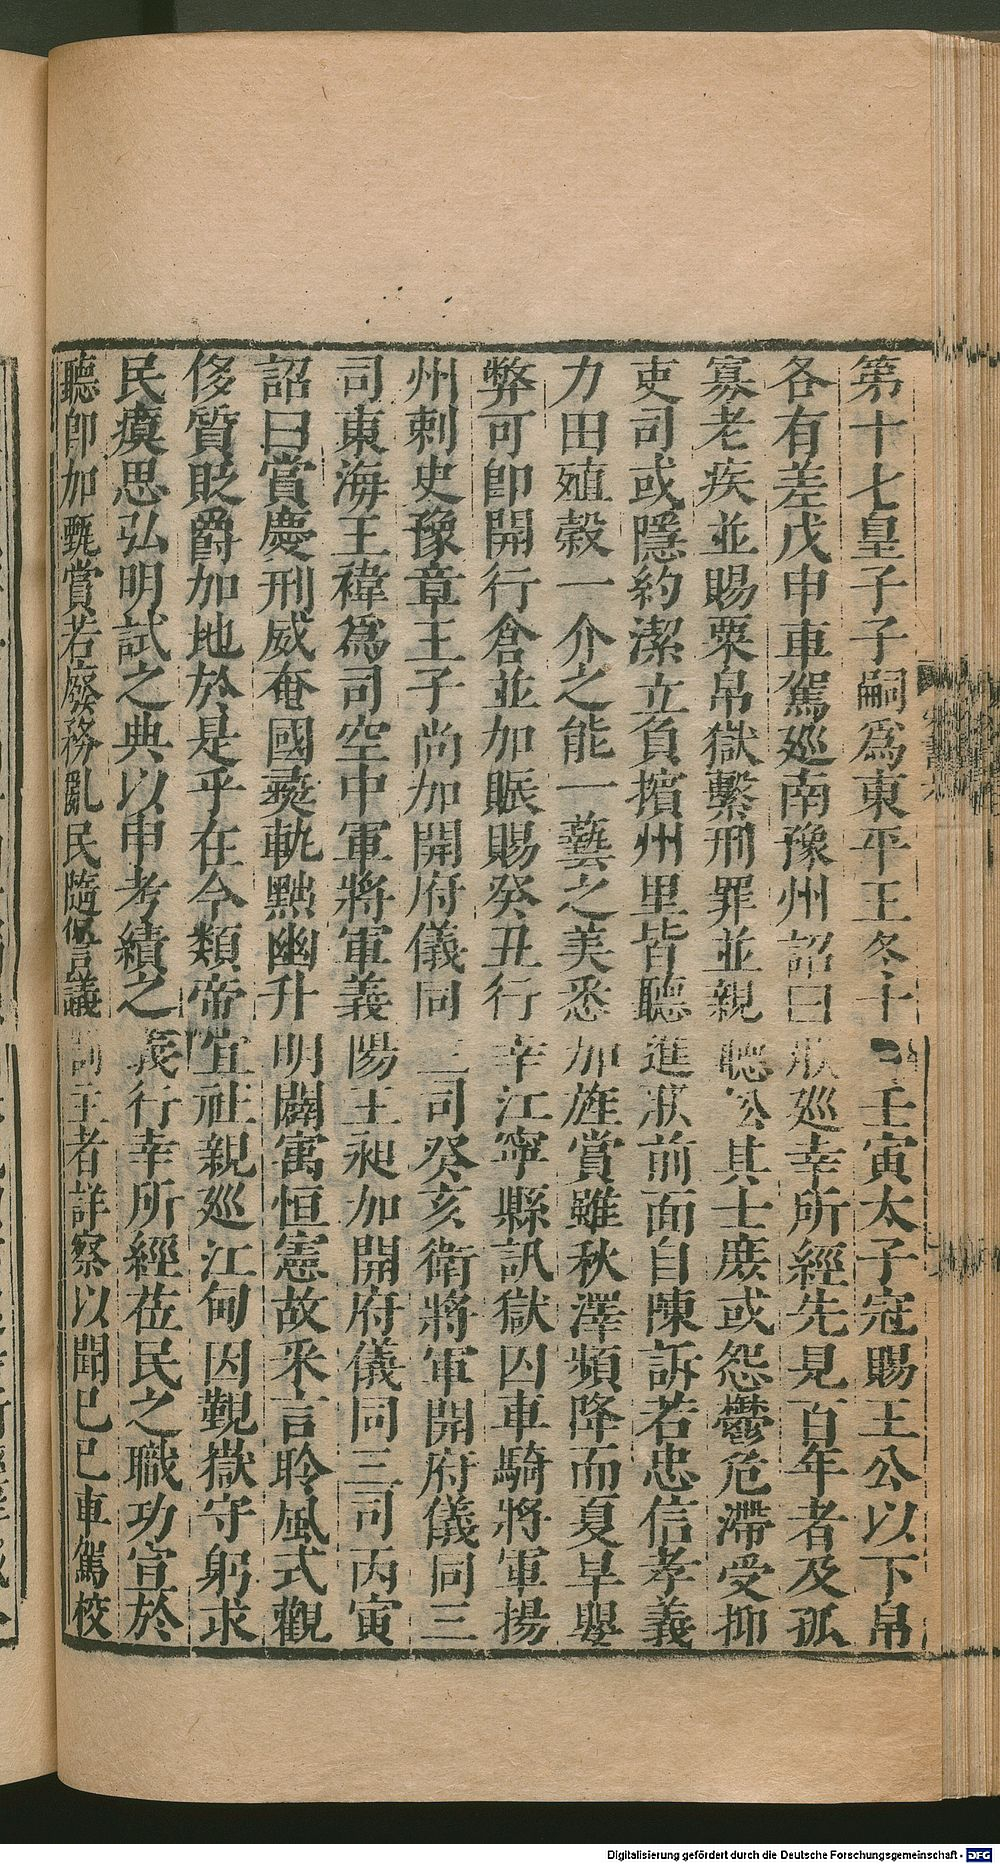 第十七皇子子嗣爲東平王冬十月壬寅太子冠賜王公以下帛
各有差戊申車駕巡南豫州詔曰朕巡幸所經先見百年者及孤
寡老疾並賜粟帛獄繫刑罪並親聽訟其士庶或怨鬱危滯受抑
吏司或隱約潔立負擯州里皆聽進朕前面自陳訴若忠信孝義
力田殖穀一介之能一藝之美悉加旌賞雖秋澤頻降而夏旱嬰
弊可卽開行倉並加賑賜癸丑行幸江寧縣訊獄囚車騎將軍揚
州刺史豫章王子尚加開府儀同三司癸亥衞將軍開府儀同三
司東海王褘爲司空中軍將軍義陽王昶加開府儀同三司丙寅
詔曰賞慶刑威奄國彝軌黜幽升明闢寓恒憲故釆言聆風式觀
侈質貶爵加地於是乎在今類帝宜社親巡江甸因覲嶽守躬求
民瘼思弘明試之典以申考績之義行幸所經莅民之職功宣於
聽卽加甄賞若廢務亂民隨愆議罰主者詳察以聞己巳車駕校
Digitalisierung gefördert durch die Deutsche Forschungsgemeinschaft - DFG